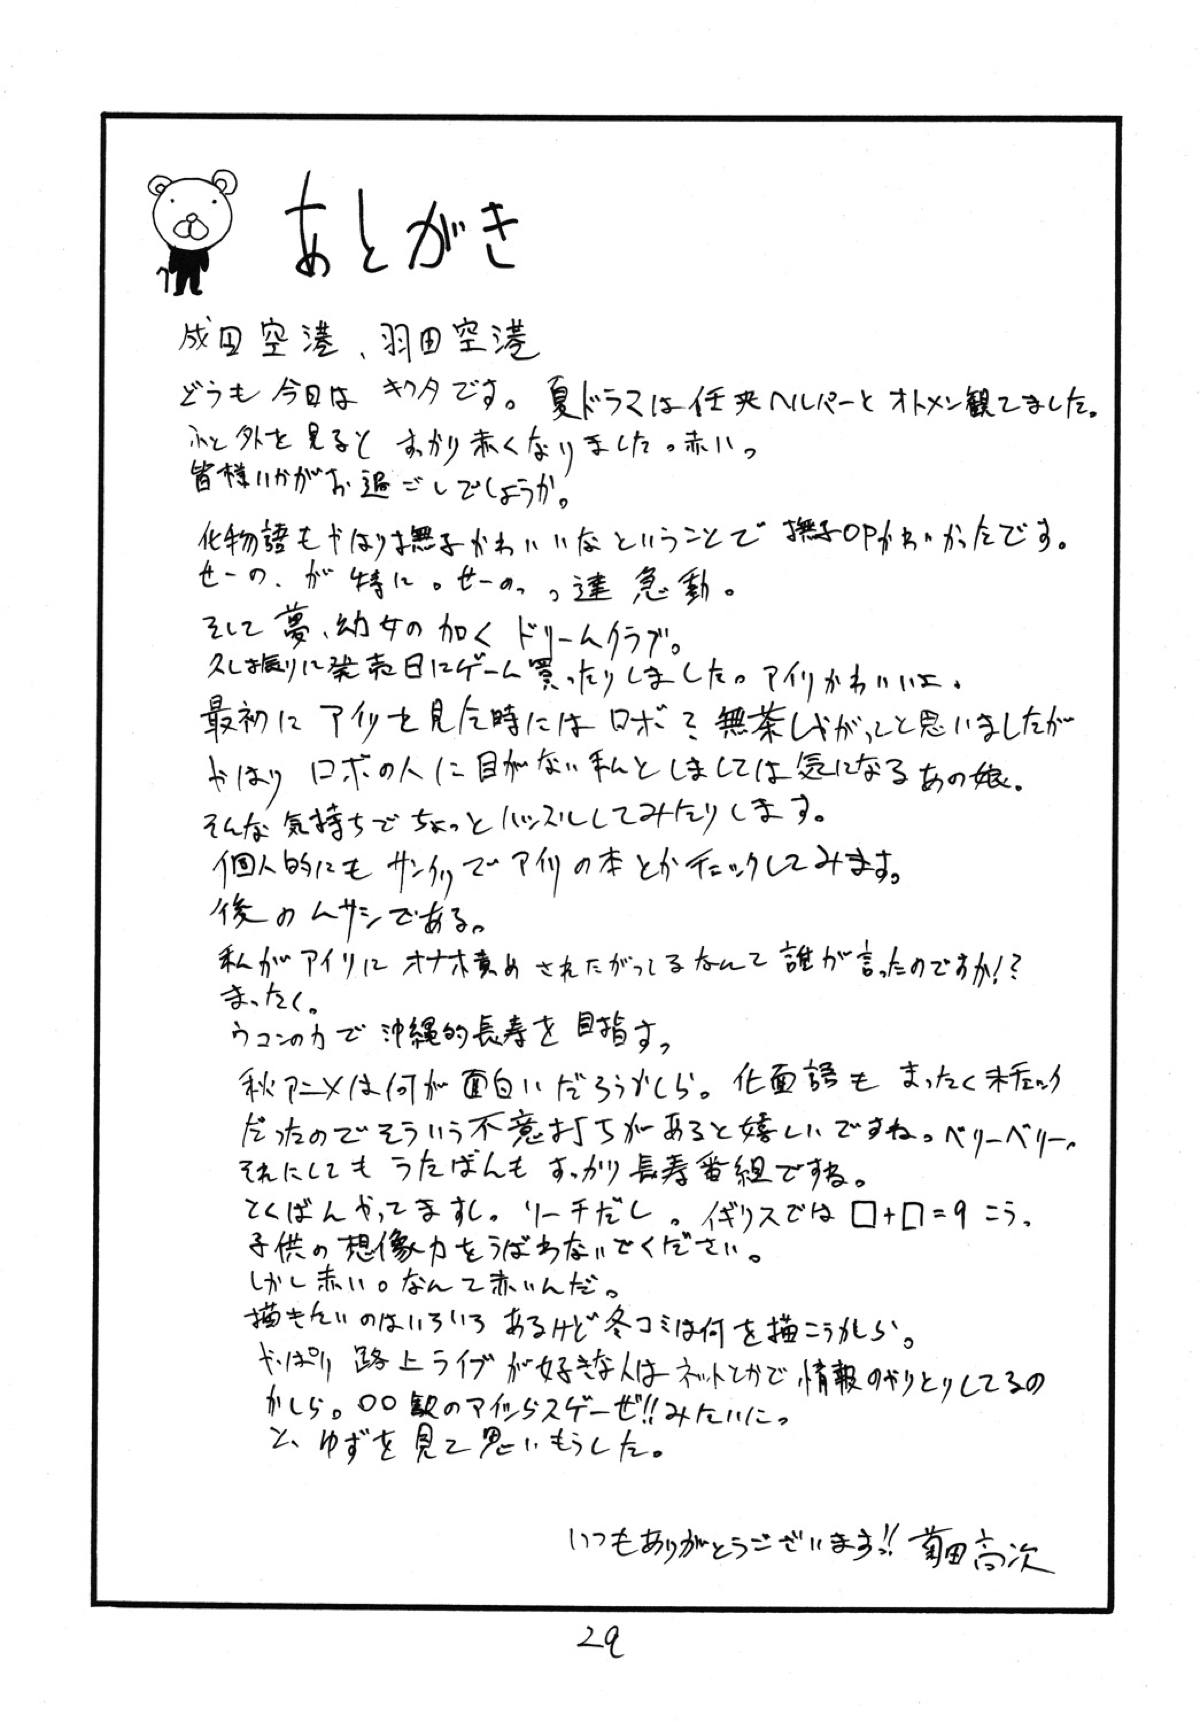 あとがき
成田空港、羽田空港
どうも今日は キクタです。 夏ドラマは任夾ヘルパーと オトメン観てました。
ふと外を見ると すっかり赤くなりました。赤いっ
皆様いかがお過ごしでしょうか。
化物語もやはり撫子かわいいなということで 撫子OPかわいかったです。
せーの、が特に。せーのっっ達急動。
そして夢、幼女の如く ドリームクラブ。
久し振りに発売日にゲーム買ったりしました。アイリかわいいよ。
最初に アイリを見た時には ロボ!? 無茶しやがってと思いましたが
やはり ロボの人に目がない私としましては気になるあの娘。
そんな気持ちでちょっとハッスルしてみたりします。
個人的にも サンクリでアイリの本とかチェックしてみます。
後のムサシである。
私がアイリに オナホ責めされたがってるなんて誰が言ったのですか!?
まったく。
ウコンの力で沖縄的長寿を目指すっ
秋アニメは何が面白いだろうかしら。化面語も まったく未チェック
だったのでそういう不意打ちがあると嬉しいですね。ベリーベリーっ
それにしても うたばんも すっかり長寿番組ですね。
とくばんやってますし。リーチだし。イギリスでは □+□=9 こう。
子供の想像力をうばわないでください。
しかし赤い。なんて赤いんだ。
描きたいのはいろいろ あるけど冬コミは何を描こうかしら。
やっぱり 路上ライブが好きな人はネットとかで情報のやりとりしてるの
かしら。○○駅のアイツらスゲーぜ!!みたいにっ
と、ゆずを見て思いもうした。
いつもありがとうございますっ!! 菊田高次
29